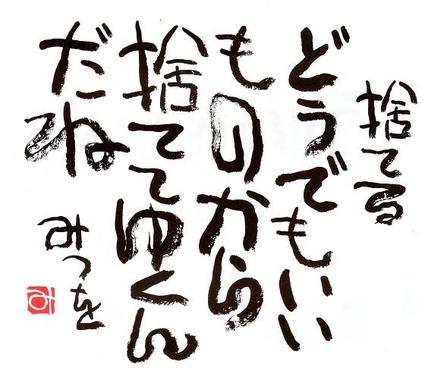 捨てる
どうでもいい
ものから
捨ててゆくん
だね
みつを
み